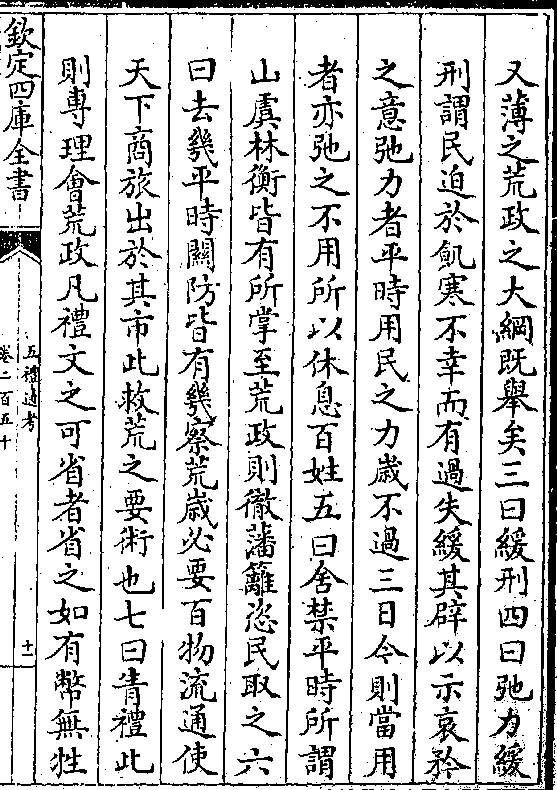 又薄之荒政之大綱既舉矣三曰緩刑四曰弛力緩
刑謂民迫於飢寒不幸而有過失緩其辟以示哀矜
之意弛力者平時用民之力歲不過三日今則當用
者亦弛之不用所以休息百姓五曰舍禁平時所謂
山虞林衡皆有所掌至荒政則徹藩籬恣民取之六
曰去幾平時關防皆有幾察荒歲必要百物流通使
天下商旅出於其市此救荒之要術也七曰眚禮此
則專理會荒政凡禮文之可省者省之如有幣無牲
欽定四庫全書
五禮通考
卷二百五十
十一